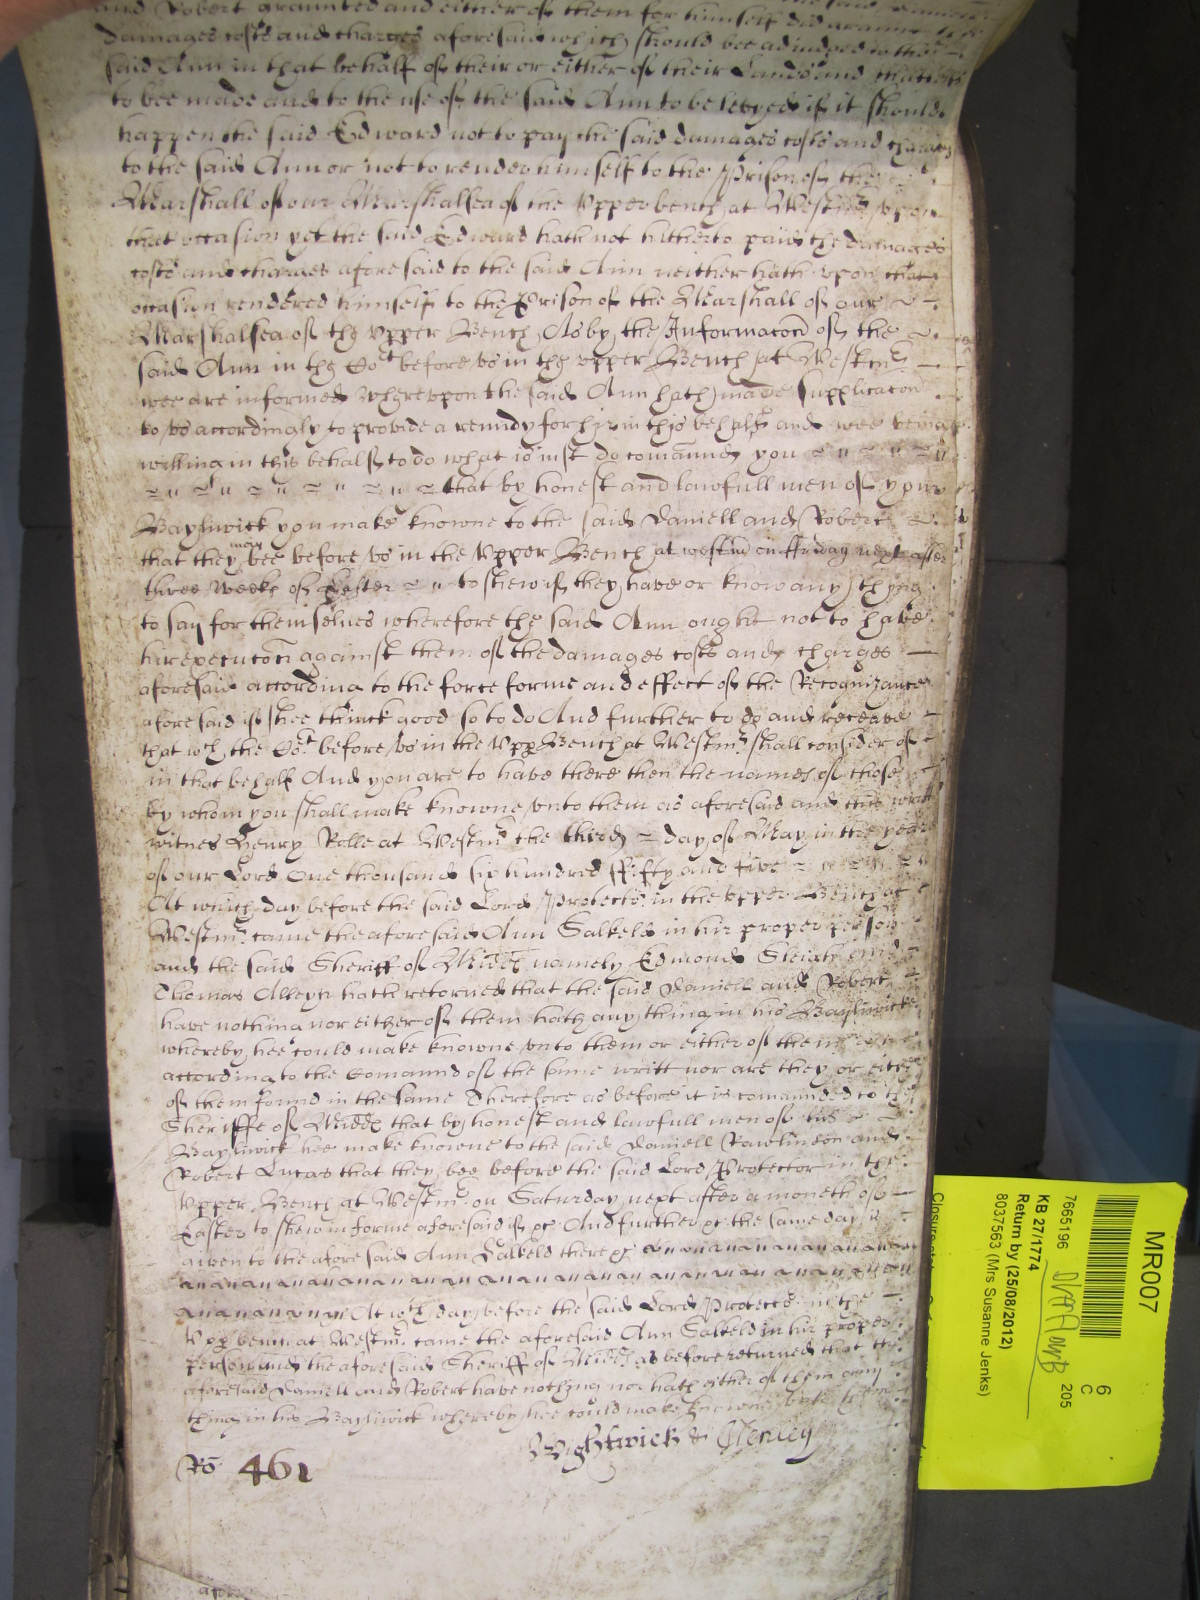 and Robert graunted and either of them for himself did graunt
damages costs and charges aforesaid which should bee adiudged to the
said Ann in that behalf of their or either of their Lands and chattells
to bee made and to the use of the said Ann to be levyed if it should
happen the said Edward not to pay the said damages costs and charges
to the said Ann or not to render himself to the Prison of the
Marshall of our Marshalsea of the Vpper bench at Westmr vpon
that occasion yet the said Edward hath not hitherto paid the damages
costs and charges aforesaid to the said Ann neither hath vpon that
occasion rendered himself to the Prison of the Marshall of our
Marshalsea of the Vpper Bench As by the Informacon of the
said Ann in the Cort before vs in the vpper Bench at Westmr
wee are informed Wherevpon the said Ann hath made Supplicacon
to vs accordingly to provide a remidy for hir in this behalf and wee being
willing in this behalf to do what is iust do comaund you
that by honest and lawfull men of your
Bayliwick you make knowne to the said Daniell and Robert
that they may bee before vs in the Vpper Bench at westmr on ffriday next after
three weeks of Easter to shew if they have or know any thing
to say for themselves wherefore the said Ann ought not to have
hir execucon against them of the damages costs and charges
aforesaid according to the force forme and effect of the Recognizance
aforesaid if shee thinck good so to do And further to do and receave
that wch the Cort before vs in the Vpp Bench at Westmr shall consider of
in that behalf And you are to have there then the names of those
by whom you shall make knowne vnto them as aforesaid and this writt
witnes Henry Rolle at Westmr the third day of May in the year
of our Lord One thousand six hundred ffifty and five
At which day before the said Lord Protector in the vpper Bench at
Westmr came the aforesaid Ann Salkeld in hir proper person
and the said Sheriff of Midd namely Edmond Sleigh and
Thomas Alleyn hath retorned that the said Daniell and Robert
have nothing nor either of them hath any thing in his Bayliwicke
whereby hee could make knowne vnto them or either of them
according to the Comaund of the same writt nor are they or either
of them found in the same Therefore as before it is comaunded to the
Sheriffe of Midd that by honest and lawfull men of his
Bayliwick hee make knowne to the said Daniell Rawlinson and
Robert Lucas that they bee before the said Lord Protector in the
Vpper Bench at Westmr on Saturday next after a moneth of
Easter to shew in forme aforesaid if &c And further &c the same day is
given to the aforesaid Ann Salkeld there &c
At wch day before the said Lord Protector in the
Vpp bench at Westmr came the aforesaid Ann Salkeld in hir proper
person and the aforesaid Sheriff of Midd as before returned that the
aforesaid Daniell and Robert have nothing nor hath either of them any
thing in his Bayliwick whereby hee could make knowne vnto them
Wightwick & Clerley
Ro 461
MR007
6
C
205
7665196
KB 27/1774
Return by (25/08/2012)
8037563 (Mrs Susanne Jenks)